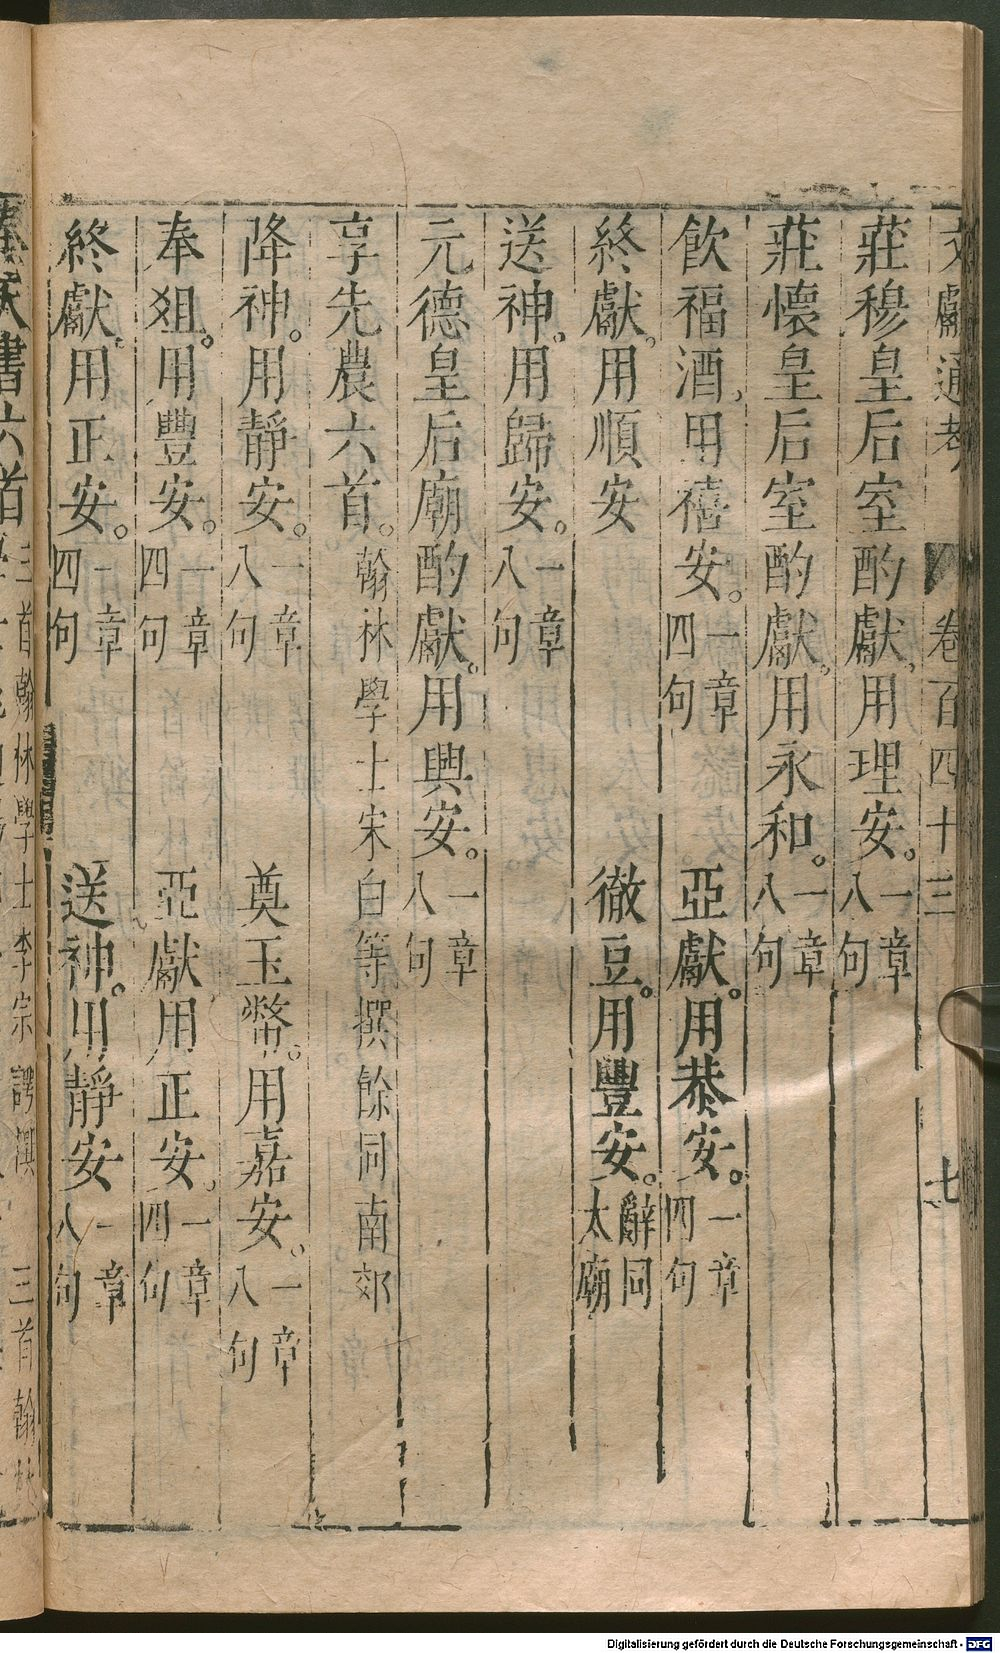 文獻通考 卷百四十三 七
莊穆皇后室酌獻。用理安。一章八句
莊懷皇后室酌獻。用永和。一章八句
飲福酒。用禧安。一章四句 亞獻。用恭安。一章四句
終獻。用順安 徹豆。用豐安。辭同太廟
送神。用歸安。一章八句
元德皇后廟酌獻。用興安。一章八句
享先農六首。翰林學士宋白等撰餘同南郊
降神。用靜安。一章八句 奠玉幣。用嘉安。一章八句
奉俎。用豐安。一章四句 亞獻用正安。一章四句
終獻。用正安。一章四句 送神。用靜安一章八句
書六首 三首翰林學士李宗諤撰 三首翰林
Digitalisierung gefördert durch die Deutsche Forschungsgemeinschaft - DFG